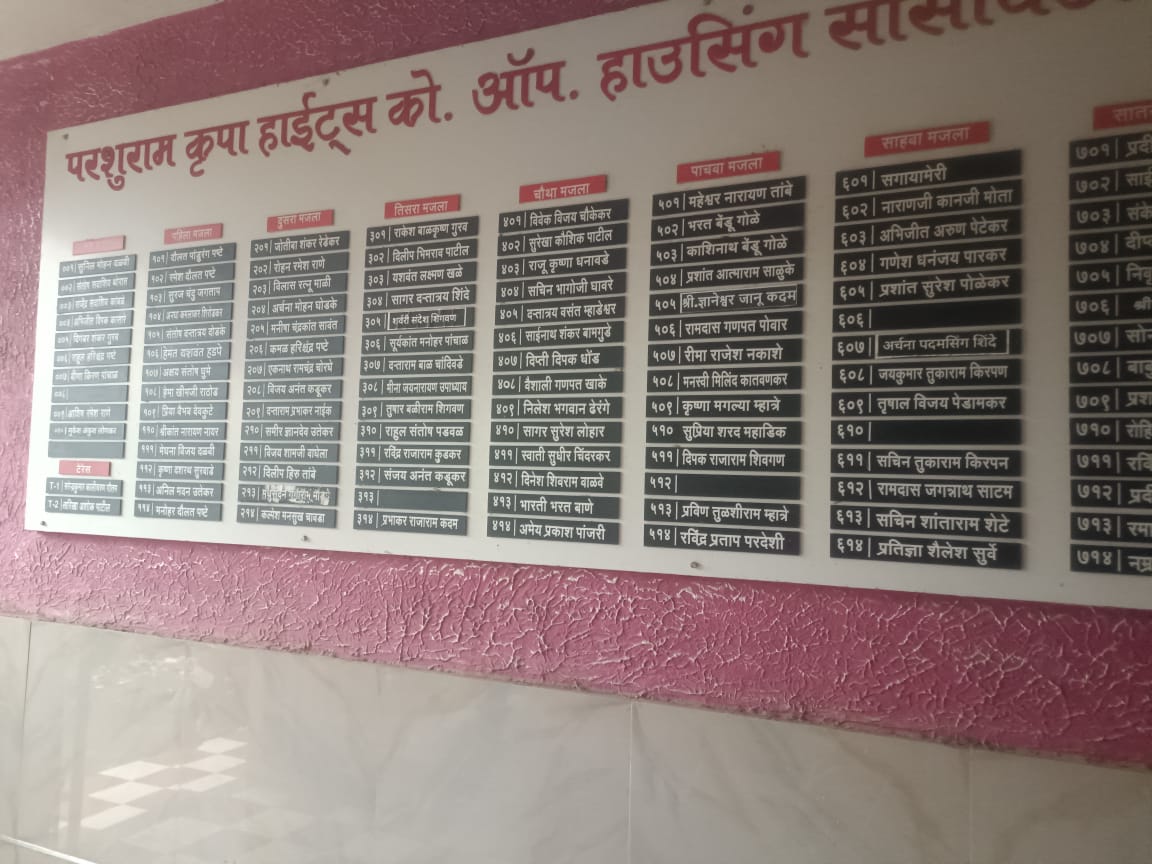 परशुराम कृपा हाईट्स को. ऑप. हाउसिंग
००१
००२
००३
००४
००५
००६
००७
००८
००९ आशिष रमेश राणे
टेरेस
T-1
T-2
पहिला मजला
१०१ दौलत पांडुरंग पष्टे
१०२ रमेश दौलत पष्टे
१०३ सुरज चंदु जगताप
१०४
१०५ संतोष दत्तात्रय दोडके
१०६ हेमंत यशवंत हडपे
१०७ अक्षय संतोष घुमे
१०८ हेमा खीमजी राठोड
१०९ प्रिया वैभव देवकुटे
११० श्रीकांत नारायण नायर
१११ मेघना विजय दळवी
११२ कृष्णा दशरथ सुरवाडे
११३ अनिल मदन उतेकर
११४ मनोहर दौलत पष्टे
दुसरा मजला
२०१ जोतीबा शंकर रेडेकर
२०२ रोहन रमेश राणे
२०३ विलास रत्नू माळी
२०४ अर्चना मोहन घोडके
२०५ मनीषा चंद्रकांत सावंत
२०६ कमळ हरिश्चंद्र पष्टे
२०७ एकनाथ रामचंद्र चोरघे
२०८ विजय अनंत कडूकर
२०९ दत्ताराम प्रभाकर नाईक
२१० समीर ज्ञानदेव उतेकर
२११ विजय शामजी वाघेला
२१२ दिलीप हिरु तांबे
२१३
२१४ कल्पेश मनसुख चावडा
तिसरा मजला
३०१ राकेश बाळकृष्ण गुरव
३०२ दिलीप भिमराव पाटील
३०३ यशवंत लक्ष्मण खळे
३०४ सागर दत्तात्रय शिंदे
३०५ शर्वरी संदेश शिगवण
३०६ सूर्यकांत मनोहर पांचाळ
३०७ दत्ताराम बाळ चांदिवडे
३०८ मीना जयनारायण उपाध्याय
३०९ तुषार बळीराम शिगवण
३१० राहुल संतोष पडवळ
३११ रविंद्र राजाराम कुडकर
३१२ संजय अनंत कडूकर
३१३
३१४ प्रभाकर राजाराम कदम
चौथा मजला
४०१ विवेक विजय चौकेकर
४०२ सुरेखा कौशिक पाटील
४०३ राजू कृष्णा धनावडे
४०४ सचिन भागोजी घावरे
४०५ दत्तात्रय वसंत म्हाडेश्वर
४०६ साईनाथ शंकर बामगुडे
४०७ दिप्ती दिपक धोंड
४०८ वैशाली गणपत खाके
४०९ निलेश भगवान ढेरंगे
४१० सागर सुरेश लोहार
४११ स्वाती सुधीर चिंदरकर
४१२ दिनेश शिवराम वाळवे
४१३ भारती भरत बाणे
४१४ अमेय प्रकाश पांजरी
पाचवा मजला
५०१ महेश्वर नारायण तांबे
५०२ भरत बेंडू गोळे
५०३ काशिनाथ बेंडू गोळे
५०४ प्रशांत आत्माराम साळुंके
५०५ श्री.ज्ञानेश्वर जानू कदम
५०६ रामदास गणपत पोवार
५०७ रीमा राजेश नकाशे
५०८ मनस्वी मिलिंद कातवणकर
५०९ कृष्णा मगल्या म्हात्रे
५१० सुप्रिया शरद महाडिक
५११ दिपक राजाराम शिवगण
५१२
५१३ प्रविण तुळशीराम म्हात्रे
५१४ रविंद्र प्रताप परदेशी
साहवा मजला
६०१ सगायामेरी
६०२ नाराणजी कानजी मोता
६०३ अभिजीत अरुण पेटेकर
६०४ गणेश धनंजय पारकर
६०५ प्रशांत सुरेश पोळेकर
६०६
६०७ अर्चना पदमसिंग शिंदे
६०८ जयकुमार तुकाराम किरपण
६०९ तृषाल विजय पेडामकर
६१०
६११ सचिन तुकाराम किरपन
६१२ रामदास जगन्नाथ साटम
६१३ सचिन शांताराम शेटे
६१४ प्रतिज्ञा शैलेश सुर्वे
७०१
७०२
७०३
७०४
७०५
७०६ श्री
७०७
७०८
७०९
७१०
७११
७१२
७१३
७१४